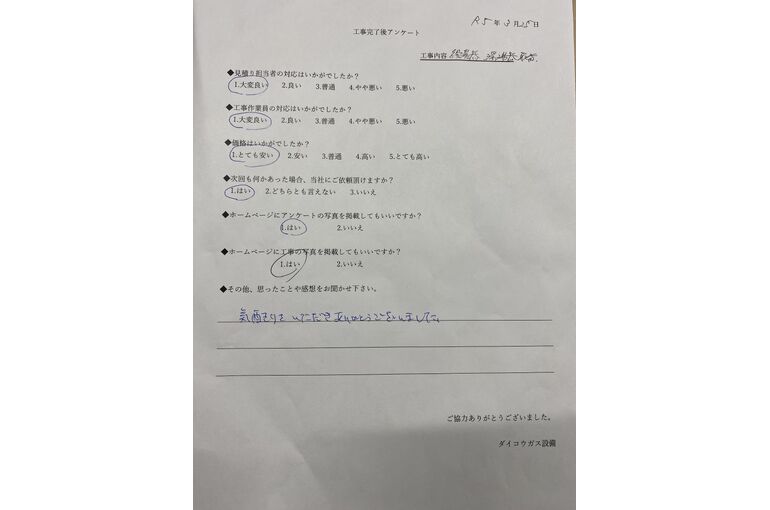 R5年3月25日
工事完了後アンケート
工事内容 給湯器
◆見積り担当者の対応はいかがでしたか?
1.大変良い 2.良い 3.普通 4.やや悪い 5.悪い
◆工事作業員の対応はいかがでしたか?
1.大変良い 2.良い 3.普通 4.やや悪い 5.悪い
◆価格はいかがでしたか?
1.とても安い 2.安い 3.普通 4.高い 5.とても高い
◆次回も何かあった場合、当社にご依頼頂けますか?
1.はい 2.どちらとも言えない 3.いいえ
◆ホームページにアンケートの写真を掲載してもいいですか?
1.はい 2.いいえ
◆ホームページに工事の写真を掲載してもいいですか?
1.はい 2.いいえ
◆その他、思ったことや感想をお聞かせ下さい。
気配りをいただきありがとうございました。
ご協力ありがとうございました。
ダイコウガス設備